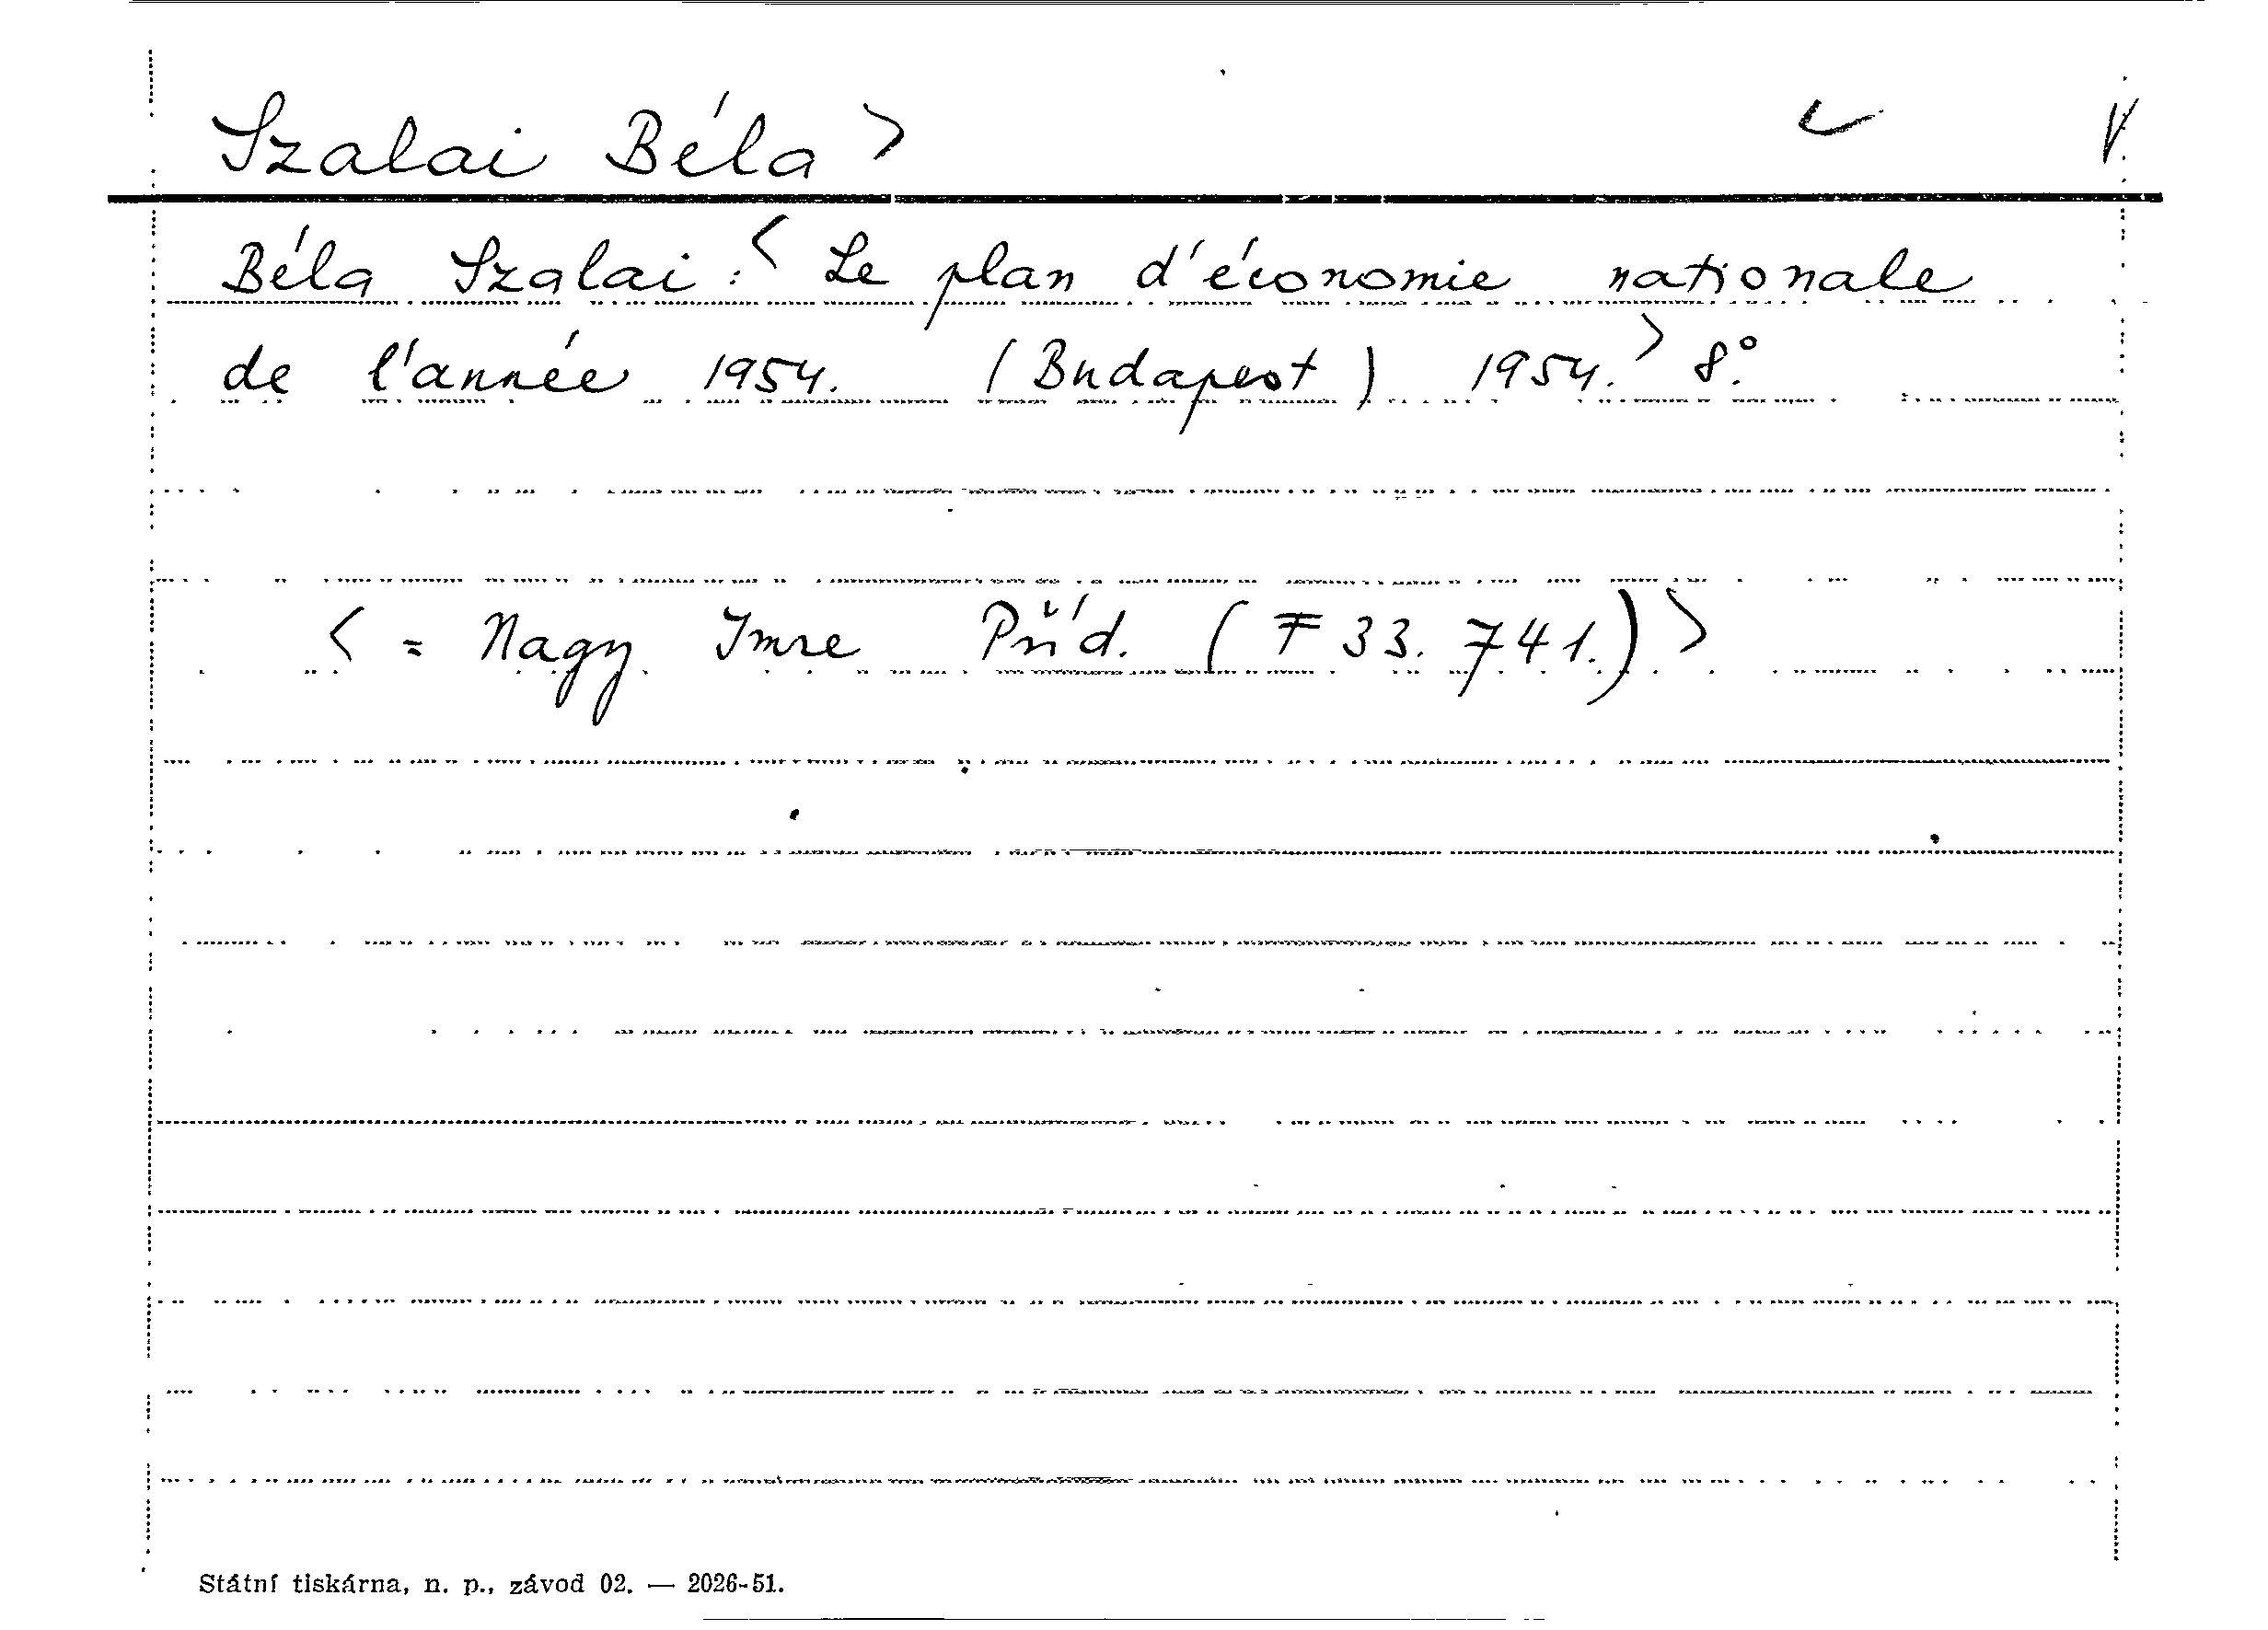 Szalai Béla > V.
Béla Szalai: < Le plan d'économie nationale
de l'année 1954. (Budapest) 1954. > 8°.
< = Nagy Imre Příd. (F 33. 741.) >
Státní tiskárna, n. p., závod 02. — 2026-51.